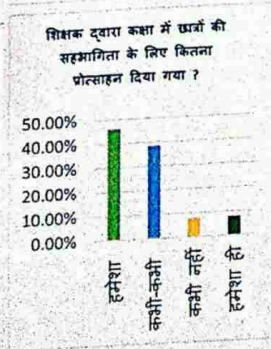 शिक्षक द्वारा कक्षा में छात्रों की
सहभागिता के लिए कितना
प्रोत्साहन दिया गया ?
50.00%
40.00%
30.00%
20.00%
10.00%
0.00%
हमेशा
कभी-कभी
कभी नहीं
हमेशा ही